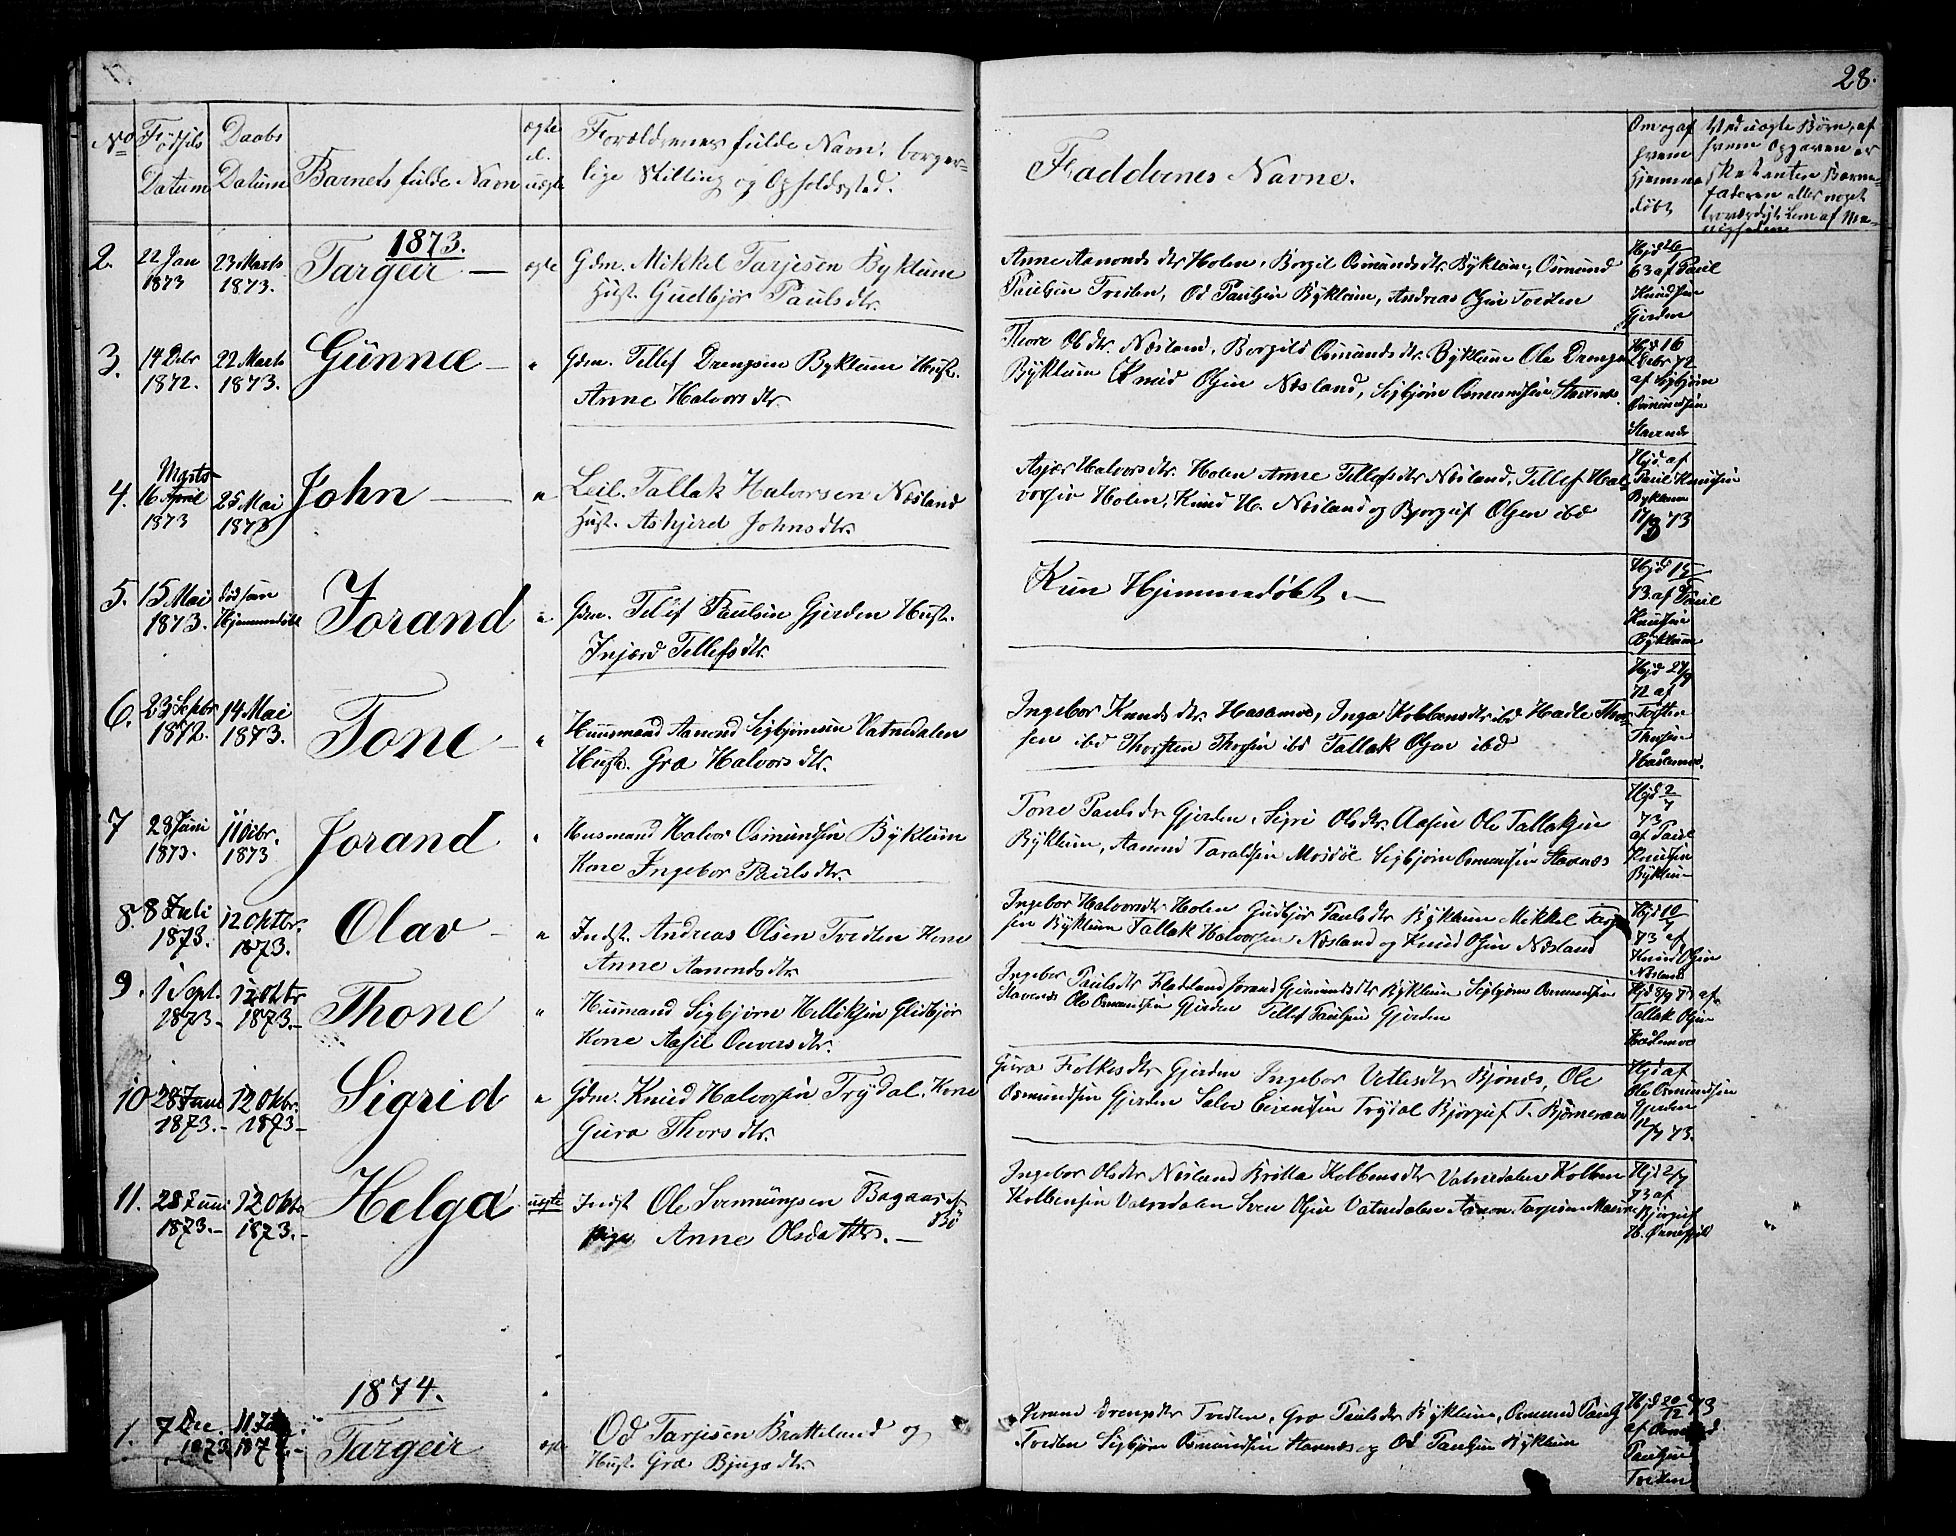 28.
No Fødsels Datum
Daabs Datum
Barnets fulde Navn
ægte el. uægte
Forældrenes fulde Navn, borger-
lige Stilling og Opholdssted.
Faddernes Navne.
Om og af hvem hjemme døbt
Ved uægte Børn, af
hvem Opgaven er
1873.
2. 22 Jan 1873
23 Marts 1873.
Targeir —
ægte
Gdm. Mikkel Tarjesen Byklum
Hust. Gudbjør Paulsdtr.
Anne Aanonds dtr Holen, Borgil Osmundsdtr. Byklum, Osmund
Paulsen Tredten, Od Paulsen Byklum, Andreas Olsen Tvedten
Hjd
63 af Paul
Knudsen
Gjerden
3. 14 Debr 1872.
22 Marts 1873.
Gunne —
"
Gdm. Tellef Drengsen Byklum Hust.
Anne Halvorsdtr.
Thore Olsdtr. Næsland, Borgild Osmundsdtr. Byklum Ole Drengs
Byklum Knud Olsen Næsland, Sigbjørn Osmundsen Stavenes
Hjd 16
Debr 72
af Sigbjørn
Osmundsen
Stavenes
4. Marts
16 April 1873
25 Mai 1873
John —
"
Leil. Tallak Halvorsen Næsland
Hust. Askjerd Johnsdtr.
Asjær Halvorsdtr. Holen Anne Tellefsdtr Næsland, Tellef Hal-
vorsen Holen, Knud H. Næsland og Bjorguf Olsen ibd
Hjd. af
Paul Knudsen
Byklum
17/3 73
5. 15 Mai 1873.
død som Hjemmedøbt
Jorand
"
Gdm. Tellef Paulsen Gjerden Hust.
Injærd Tellefsdtr.
Kun Hjemmedøbt. —
Hjd 15
73. af Paul
Knudsen
Byklum
6. 23 Septbr 1872.
14 Mai 1873.
Tone —
"
Huusmand Aanond Sigbjørnsen Vatnedalen
Hust. Gro Halvorsdtr.
Ingebor Knudsdtr. Hasamoe, Inga Kolbensdtr ibd Hadle Thor-
sen ibd Thorsten Thorsen ibd Tallak Olsen ibd
Hjd 24/9
72 af
Torsten
Thorsen
Hadlemoe.
7 28 Juni 1873.
11 Oktbr. 1873
Jorand —
"
Husmand Halvor Osmundsen Byklum
Kone Ingebor Paulsdtr.
Tone Paulsdtr Gjerden, Sigri Olsdtr. Aasen Ole Tallaksen
Byklum, Aanund Taraldsen Mosdøl Sigbjørn Osmundsen Stavenes
Hjd 2/7
73
af Paul
Knudsen
Byklum
8. 8 Juli 1873.
12 Oktbr. 1873.
Olav —
"
Indst. Andreas Olsen Tvedten Kone
Anne Aanondsdtr
Ingebor Halvorsdtr Holen Gudbjør Paulsdtr Byklum Mikkel Tarje
sen Byklum Tallak Halvorsen Næsland og Knud Olsen Næsland
Hjd 10/7
73 af
Knud Olsen
Næsland
9. 1 Sept. 1873
12 Oktbr 1873.
Thone
"
Husmand Sigbjørn Helliksen Glidbjør
Kone Aasil Ouversdtr.
Ingebor Paulsdtr Fladeland Jorand Gjermundsdtr Byklum Sigbjørn Osmundsen
Stavenes Ole Osmundsen Gjerden Tellef Paulsen Gjerden
Hjd 8/9 73 af
Tallak Olsen
Hadlemoe
10 28 Juni 1873.
12 Oktbr. 1873
Sigrid
"
Gdm. Knud Halvorsen Trydal. Kone
Guro Thorsdtr.
Guro Folkesdtr Gjerden Ingebor Vetlesdtr Bjones, Ole
Osmundsen Gjerden Salve Eivensen Trydal Bjorguf T. Bjørneraa
Hjd af
Ole Osmundsen
Gjerden
12/7 73.
11. 28 Juni 1873.
12 Oktbr 1873.
Helga
uægte
Indst Ole Svennungsen Bagaas af
Bø
pige Anne Olsdatter. —
Ingebor Olsdtr Næsland Britta Kolbensdtr Vatnedalen Kolben
Kolbensen Vatnedalen Sven Olsen Vatnedalen Aanon Tarjesen
Hjd 2/7
73 af
Bjørguf
H. Ørnefjeld
1874.
1. 7 Dec. 1873
Targeir
ægte
Od Tarjesen Bratteland og
Hust. Gro Bjugsdtr.
Jorand Drengsdtr Tvedten, Gro Paulsdtr Byklum, Osmund Pauls
Tvedten Sigbjørn Osmundsen Stavenes og Od Paulsen Byklum
Hjd 20/12 73
af Osmund
Paulsen
Tvedten